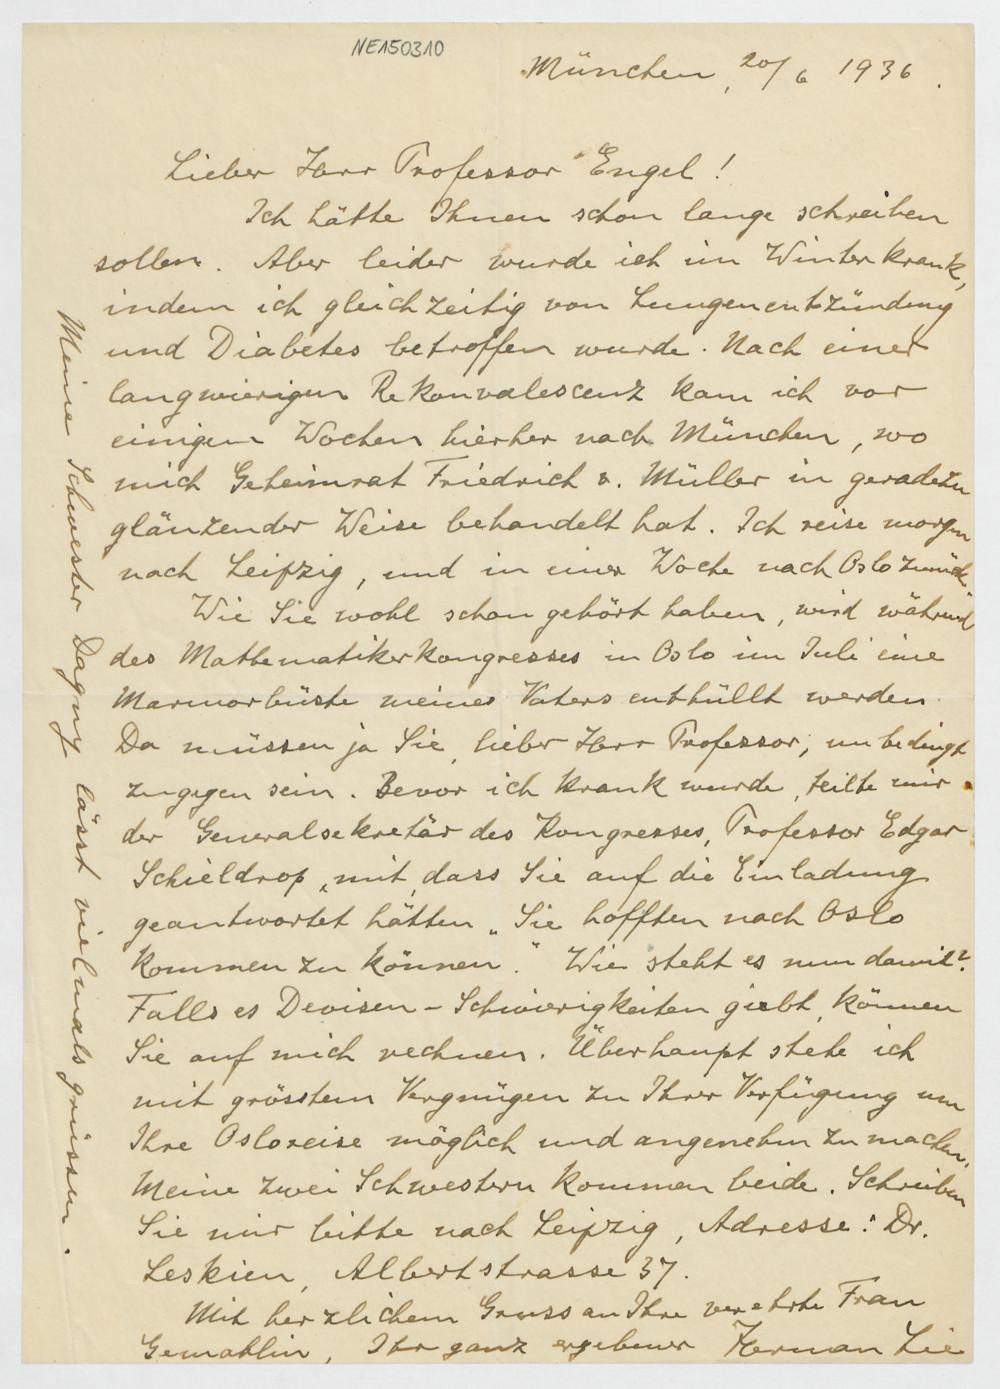 NE150310
München, 20/6 1936.
Lieber Herr Professor Engel!
Ich hätte Ihnen schon lange schreiben
sollen. Aber leider wurde ich im Winter krank,
indem ich gleichzeitig von Lungenentzündung
und Diabetes betroffen wurde. Nach einer
langwierigen Rekonvalescenz kam ich vor
einigen Wochen hierher nach München, wo
mich Geheimrat Friedrich v. Müller in geradezu
glänzender Weise behandelt hat. Ich reise morgen
nach Leipzig, und in einer Woche nach Oslo zurück.
Wie Sie wohl schon gehört haben, wird während
des Mathematikerkongresses in Oslo im Juli eine
Marmorbüste meines Vaters enthüllt werden.
Da müssen ja Sie, lieber Herr Professor, unbedingt
zugegen sein. Bevor ich krank wurde, teilte mir
der Generalsekretär des Kongresses, Professor Edgar
Schieldrop, mit, dass Sie auf die Einladung
geantwortet hätten „Sie hofften nach Oslo
kommen zu können." Wie steht es nun damit?
Falls es Devisen-Schwierigkeiten giebt, können
Sie auf mich rechnen. Überhaupt stehe ich
mit grösstem Vergnügen zu Ihrer Verfügung um
Ihre Osloreise möglich und angenehm zu machen.
Meine zwei Schwestern kommen beide. Schreiben
Sie mir bitte nach Leipzig, Adresse: Dr.
Leskien, Albertstrasse 37.
Mit herzlichem Gruss an Ihre verehrte Frau
Gemahlin, Ihr ganz ergebener Herman Lie
Meine Schwester Dagny lässt vielmals grüssen.